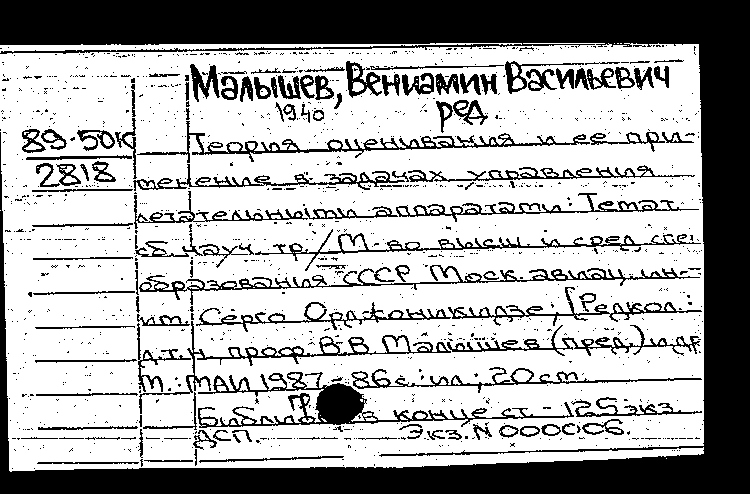 Малышев, Вениамин Васильевич
1940 ред.
89-50к Теория оценивания и ее при-
2818 менение в задачах управления
летательными аппаратами: Темат.
сб. науч. тр. / М-во высш. и сред. спец.
образования СССР, Моск. авиац. ин-
им. Серго Орджоникидзе; [Редкол.:
д.т.н., проф. В.В. Малышев (пред.) и др.
М.: МАИ, 1987. - 86 с.: ил.; 20 см.
в конце ст. - 125 экз.
ДСП. Экз. N 000006.